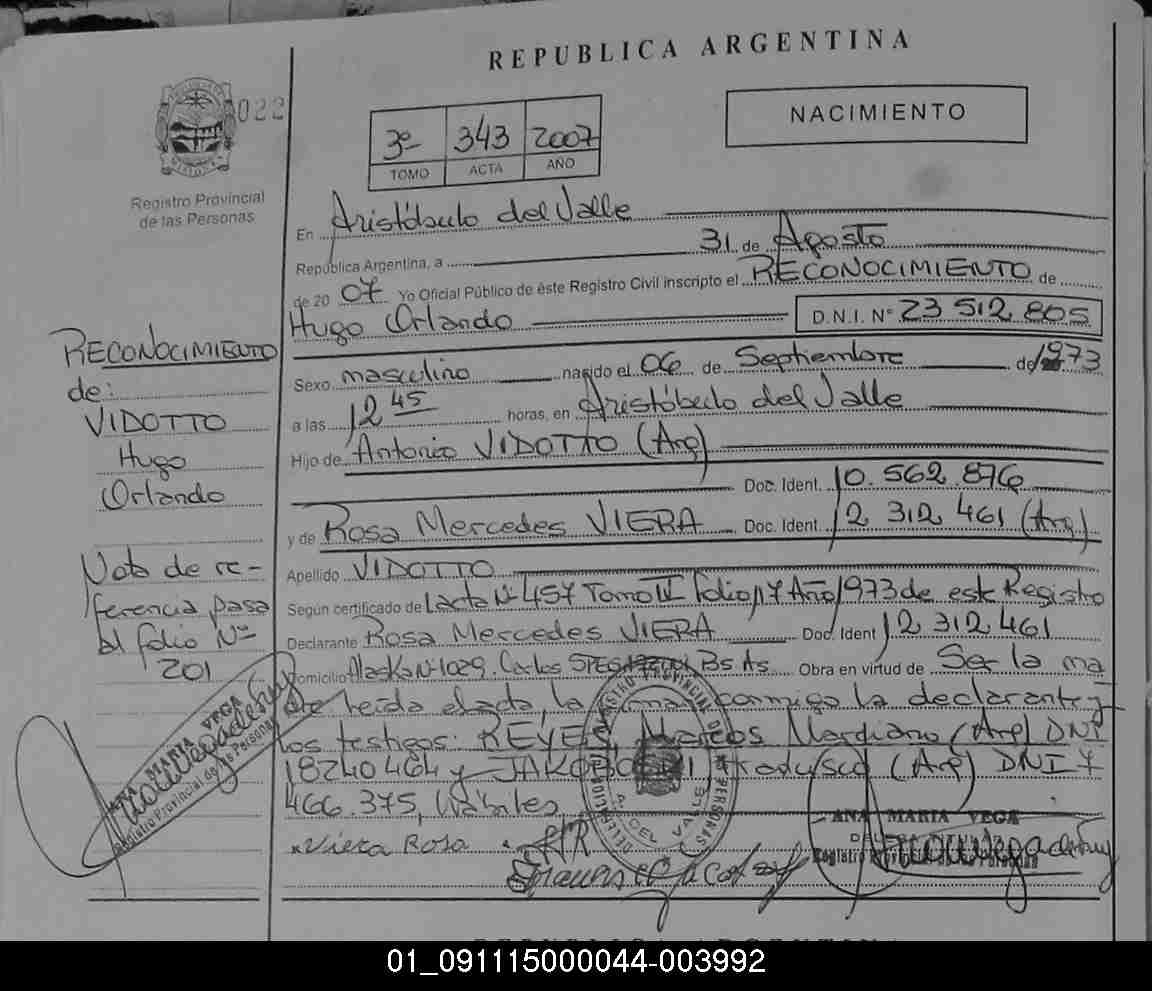 REPUBLICA ARGENTINA
022
Registro Provincial
de las Personas
3º 343 2007
TOMO ACTA AÑO
NACIMIENTO
En Aristóbulo del Valle
República Argentina, a 31 de Agosto
de 20 07 Yo Oficial Público de éste Registro Civil inscripto el RECONOCIMIENTO de
Hugo Orlando D.N.I. Nº 23 512 805
Sexo masculino nacido el 06 de Septiembre de 1973
a las 12 45 horas, en Aristóbulo del Valle
Hijo de Antonio VIDOTTO (Arg)
Doc. Ident. 10.562.876
y de Rosa Mercedes VIERA Doc. Ident. 12 312 461 (Arg.)
Apellido VIDOTTO
Según certificado de L'acta Nº 457 Tomo IV Folio 17 Año 1973 de este Registro
Declarante Rosa Mercedes VIERA Doc. Ident 12 312 461
Domicilio Alaska Nº 1029. Carlos Bs. As. Obra en virtud de Ser la ma
dre leida el acta, la firma conmigo la declarante y
los testigos: REYES, Marcos Mardiano (Arg) DNI
18240464 y Francisco (Arg) DNI 7
466.375, hábiles
Viera Rosa
ANA MARIA VEGA
RECONOCIMIENTO
de:
VIDOTTO
Hugo
Orlando
Nota de re-
ferencia pasa
al folio Nº
201
ANA MARIA VEGA
Registro Provincial de las Personas
REGISTRO PROVINCIAL DE LAS PERSONAS
A. DEL VALLE
REPUBLICA ARGENTINA
01_091115000044-003992